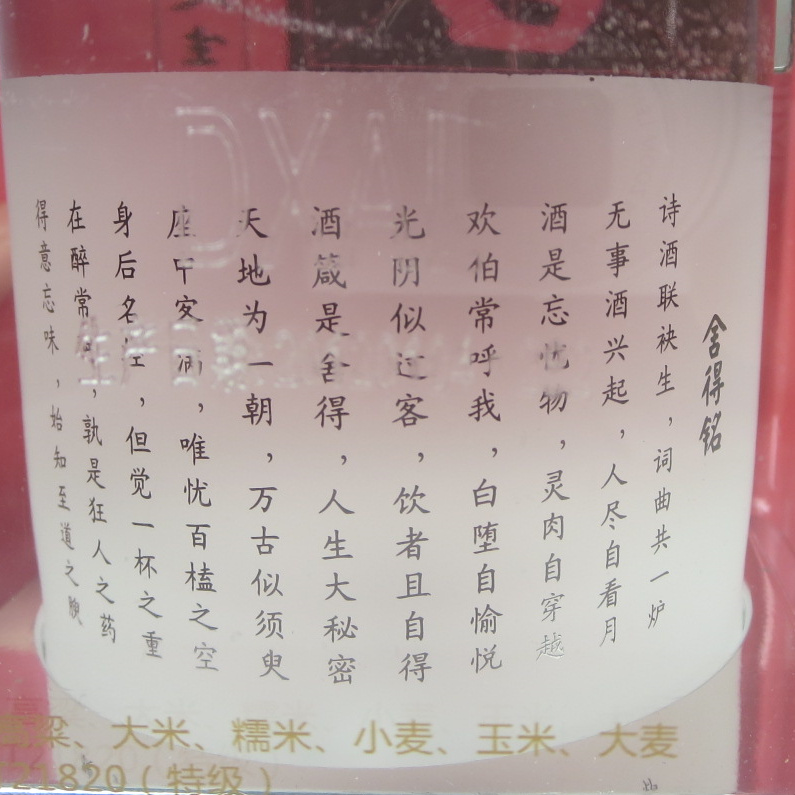 舍得铭
诗酒联袂生，词曲共一炉
无事酒兴起，人尽自看月
酒是忘忧物，灵肉自穿越
欢伯常呼我，白堕自愉悦
光阴似过客，饮者且自得
酒箴是舍得，人生大秘密
天地为一朝，万古似须臾
座中客满，唯忧百榼之空
身后名空，但觉一杯之重
在醉常，孰是狂人之药
得意忘味，始知至道之腴
粱、大米、糯米、小麦、玉米、大麦
21820（特级）